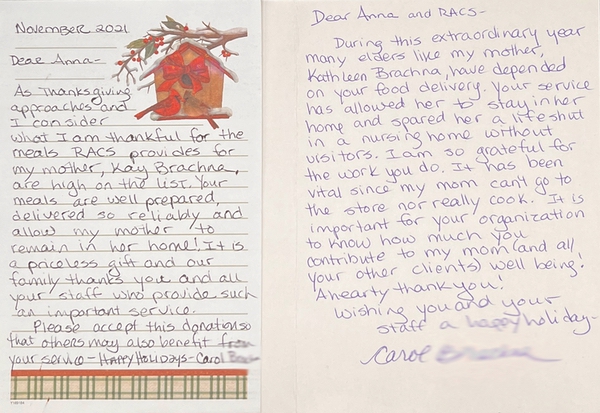 November 2021
Dear Anna-
As Thanksgiving
approaches and
I consider
what I am thankful for the
meals RACS provides for
my mother, Kay Brachna,
are high on the list. Your
meals are well prepared,
delivered so reliably and
allow my mother to
remain in her home! It is
a priceless gift and our
family thanks you and all
your staff who provide such
an important service.
Please accept this donation so
that others may also benefit from
your service - Happy Holidays - Carol
Dear Anna and RACS-
During this extraordinary year
many elders like my mother,
Kathleen Brachna, have depended
on your food delivery. Your service
has allowed her to stay in her
home and spared her a life shut
in a nursing home without
visitors. I am so grateful for
the work you do. It has been
vital since my mom can't go to
the store nor really cook. It is
important for your organization
to know how much you
contribute to my mom (and all
your other clients) well being!
A hearty thank you!
Wishing you and your
staff a happy holiday-
Carol